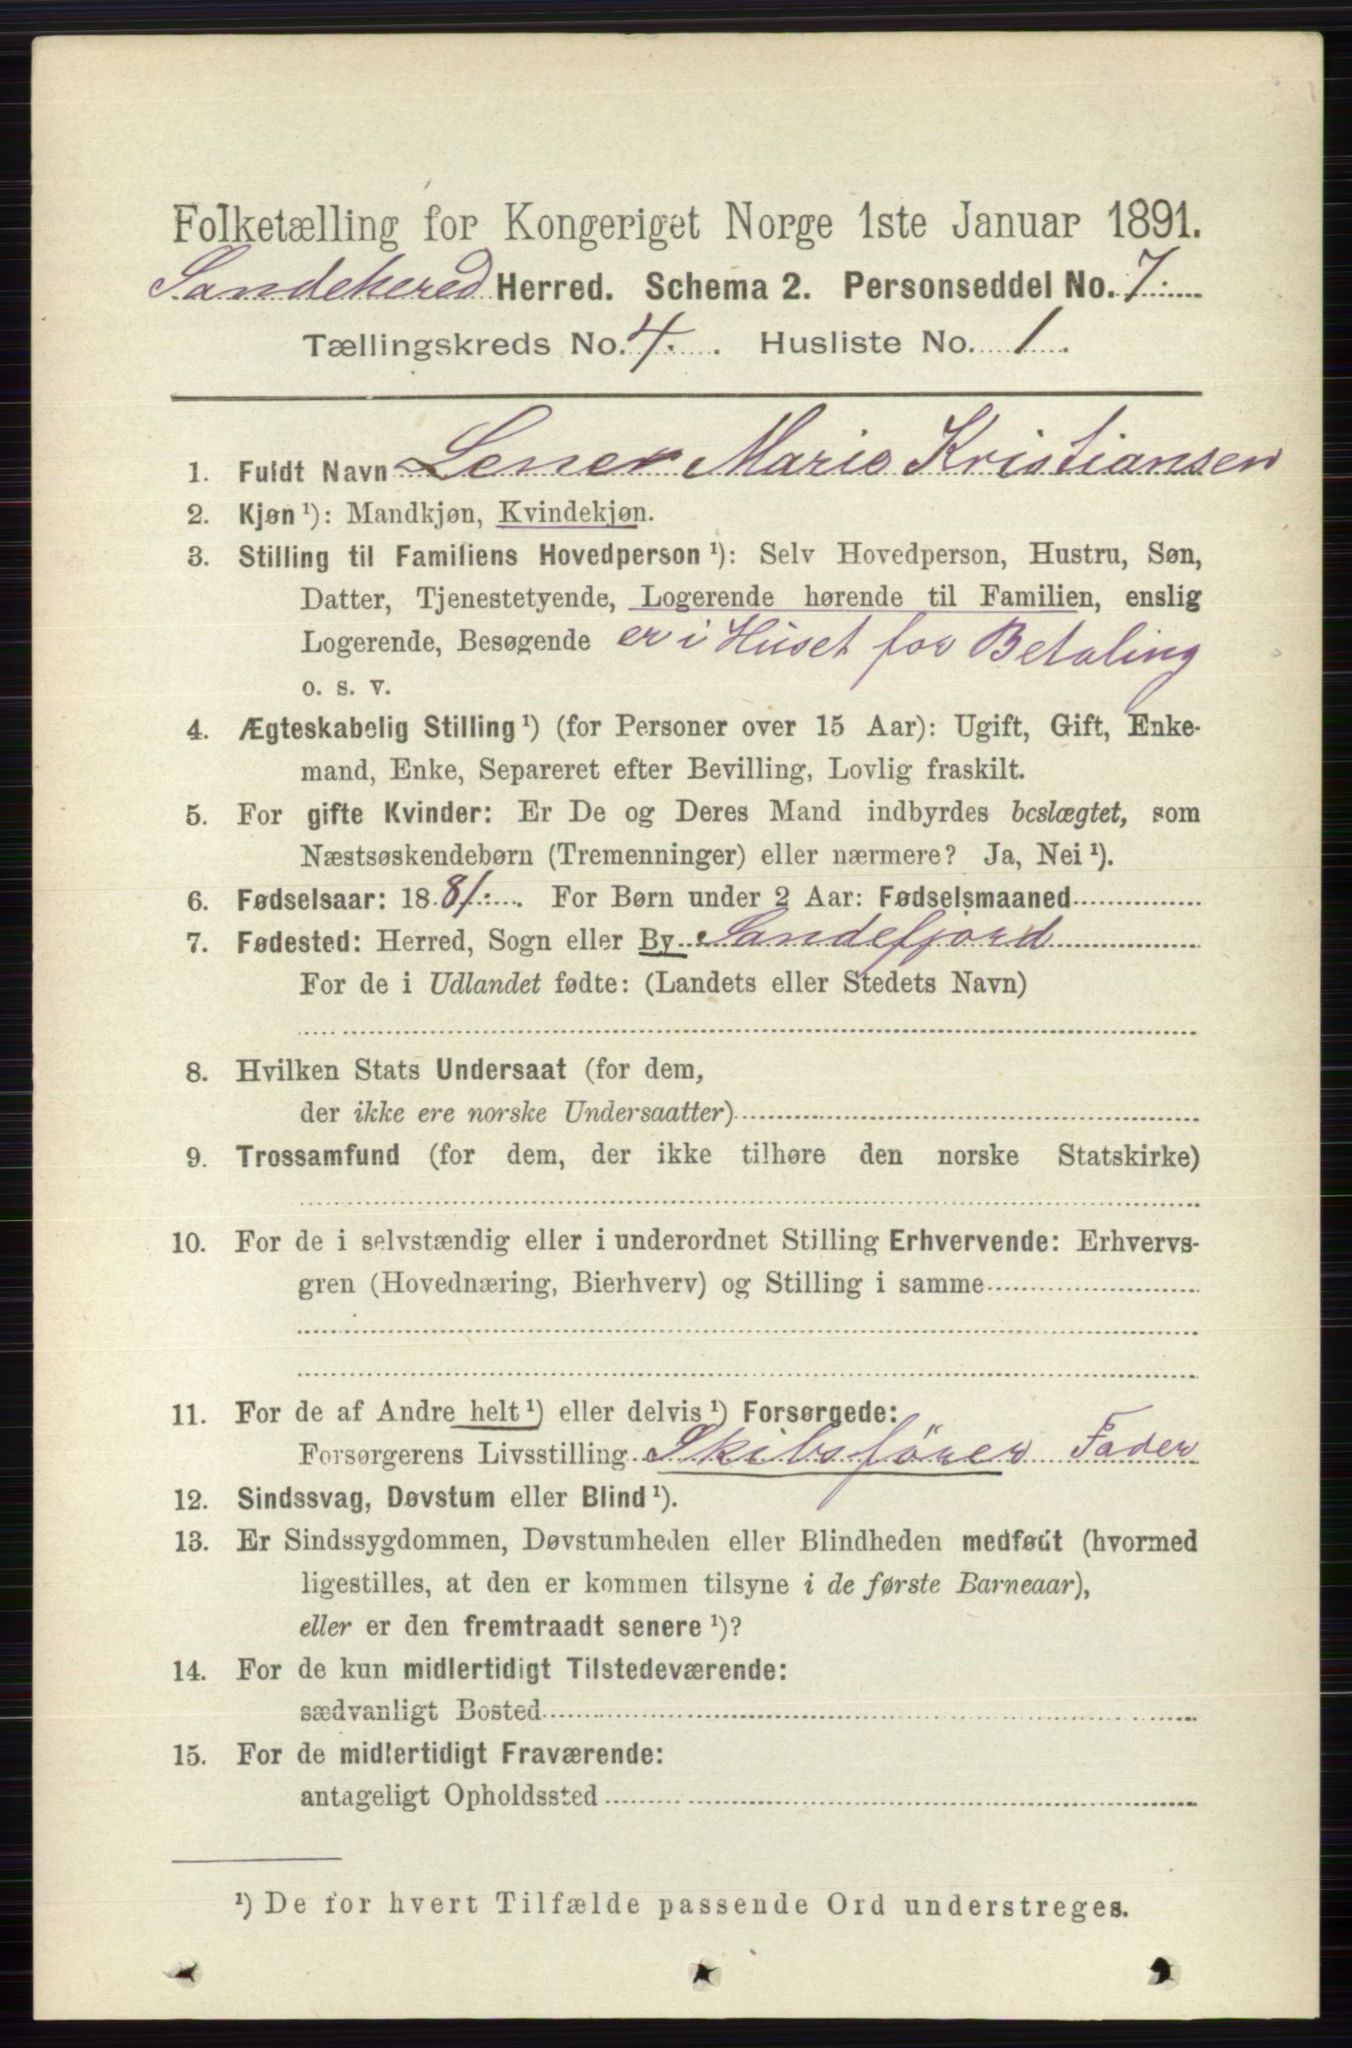 Folketælling for Kongeriget Norge 1ste Januar 1891.
Sandehered Herred. Schema 2. Personseddel No. 7.
Tællingskreds No. 4. Husliste No. 1.
1. Fuldt Navn Lener Marie Kristiansen
2. Kjøn ¹): Mandkjøn, Kvindekjøn.
3. Stilling til Familiens Hovedperson ¹): Selv Hovedperson, Hustru, Søn,
Datter, Tjenestetyende, Logerende hørende til Familien, enslig
Logerende, Besøgende er i Huset for Betaling
o. s. v.
4. Ægteskabelig Stilling ¹) (for Personer over 15 Aar): Ugift, Gift, Enke-
mand, Enke, Separeret efter Bevilling, Lovlig fraskilt.
5. For gifte Kvinder: Er De og Deres Mand indbyrdes beslægtet, som
Næstsøskendebørn (Tremenninger) eller nærmere? Ja, Nei ¹).
6. Fødselsaar: 1881. For Børn under 2 Aar: Fødselsmaaned
7. Fødested: Herred, Sogn eller By Sandefjord
For de i Udlandet fødte: (Landets eller Stedets Navn)
8. Hvilken Stats Undersaat (for dem,
der ikke ere norske Undersaatter)
9. Trossamfund (for dem, der ikke tilhøre den norske Statskirke)
10. For de i selvstændig eller i underordnet Stilling Erhvervende: Erhvervs-
gren (Hovednæring, Bierhverv) og Stilling i samme
11. For de af Andre helt ¹) eller delvis ¹) Forsørgede:
Forsørgerens Livsstilling Skibsförer Fader
12. Sindssvag, Døvstum eller Blind ¹).
13. Er Sindssygdommen, Døvstumheden eller Blindheden medfødt (hvormed
ligestilles, at den er kommen tilsyne i de første Barneaar),
eller er den fremtraadt senere ¹)?
14. For de kun midlertidigt Tilstedeværende:
sædvanligt Bosted
15. For de midlertidigt Fraværende:
antageligt Opholdssted
¹) De for hvert Tilfælde passende Ord understreges.